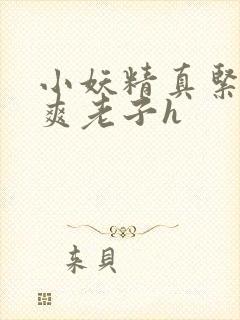 小妖精真紧
爽老子h
来貝